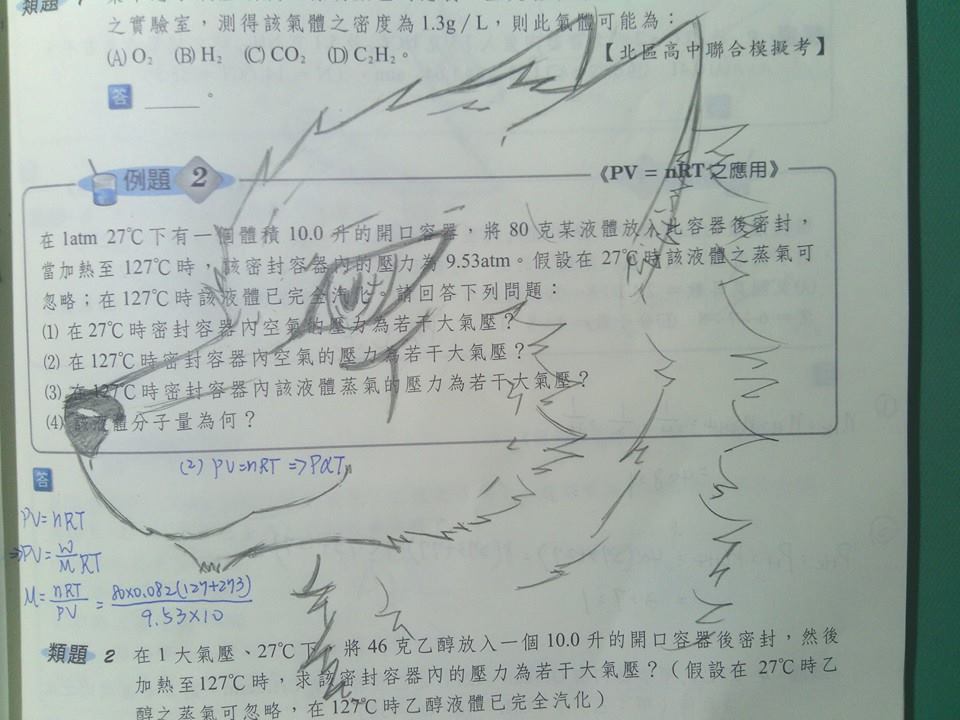 類題
之實驗室，測得該氣體之密度為1.3g / L，則此氣體可能為：
(A) O₂ (B) H₂ (C) CO₂ (D) C₂H₂。
【北區高中聯合模擬考】
答 ______。
例題 2
《PV = nRT 之應用》
在 1atm 27℃下有一個體積 10.0 升的開口容器，將 80 克某液體放入此容器後密封，
當加熱至 127℃時，該密封容器內的壓力為 9.53atm。假設在 27℃時該液體之蒸氣可
忽略；在 127℃時該液體已完全汽化。請回答下列問題：
(1) 在 27℃時密封容器內空氣的壓力為若干大氣壓？
(2) 在 127℃時密封容器內空氣的壓力為若干大氣壓？
(3) 在 127℃時密封容器內該液體蒸氣的壓力為若干大氣壓？
(4) 該液體分子量為何？
(2) PV=nRT ⇒PαT
答
PV=nRT
⇒PV=W/M RT
M=nRT/PV = 80×0.082(127+273)/9.53×10
類題 2 在 1 大氣壓、27℃下，將 46 克乙醇放入一個 10.0 升的開口容器後密封，然後
加熱至127℃時，求該密封容器內的壓力為若干大氣壓？（假設在 27℃時乙
醇之蒸氣可忽略，在127℃時乙醇液體已完全汽化）